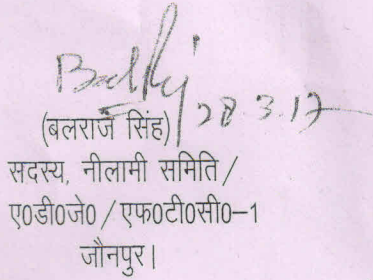 28.3.17
(बलराज सिंह)
सदस्य, नीलामी समिति /
ए0डी0जे0 / एफ0टी0सी0–1
जौनपुर।